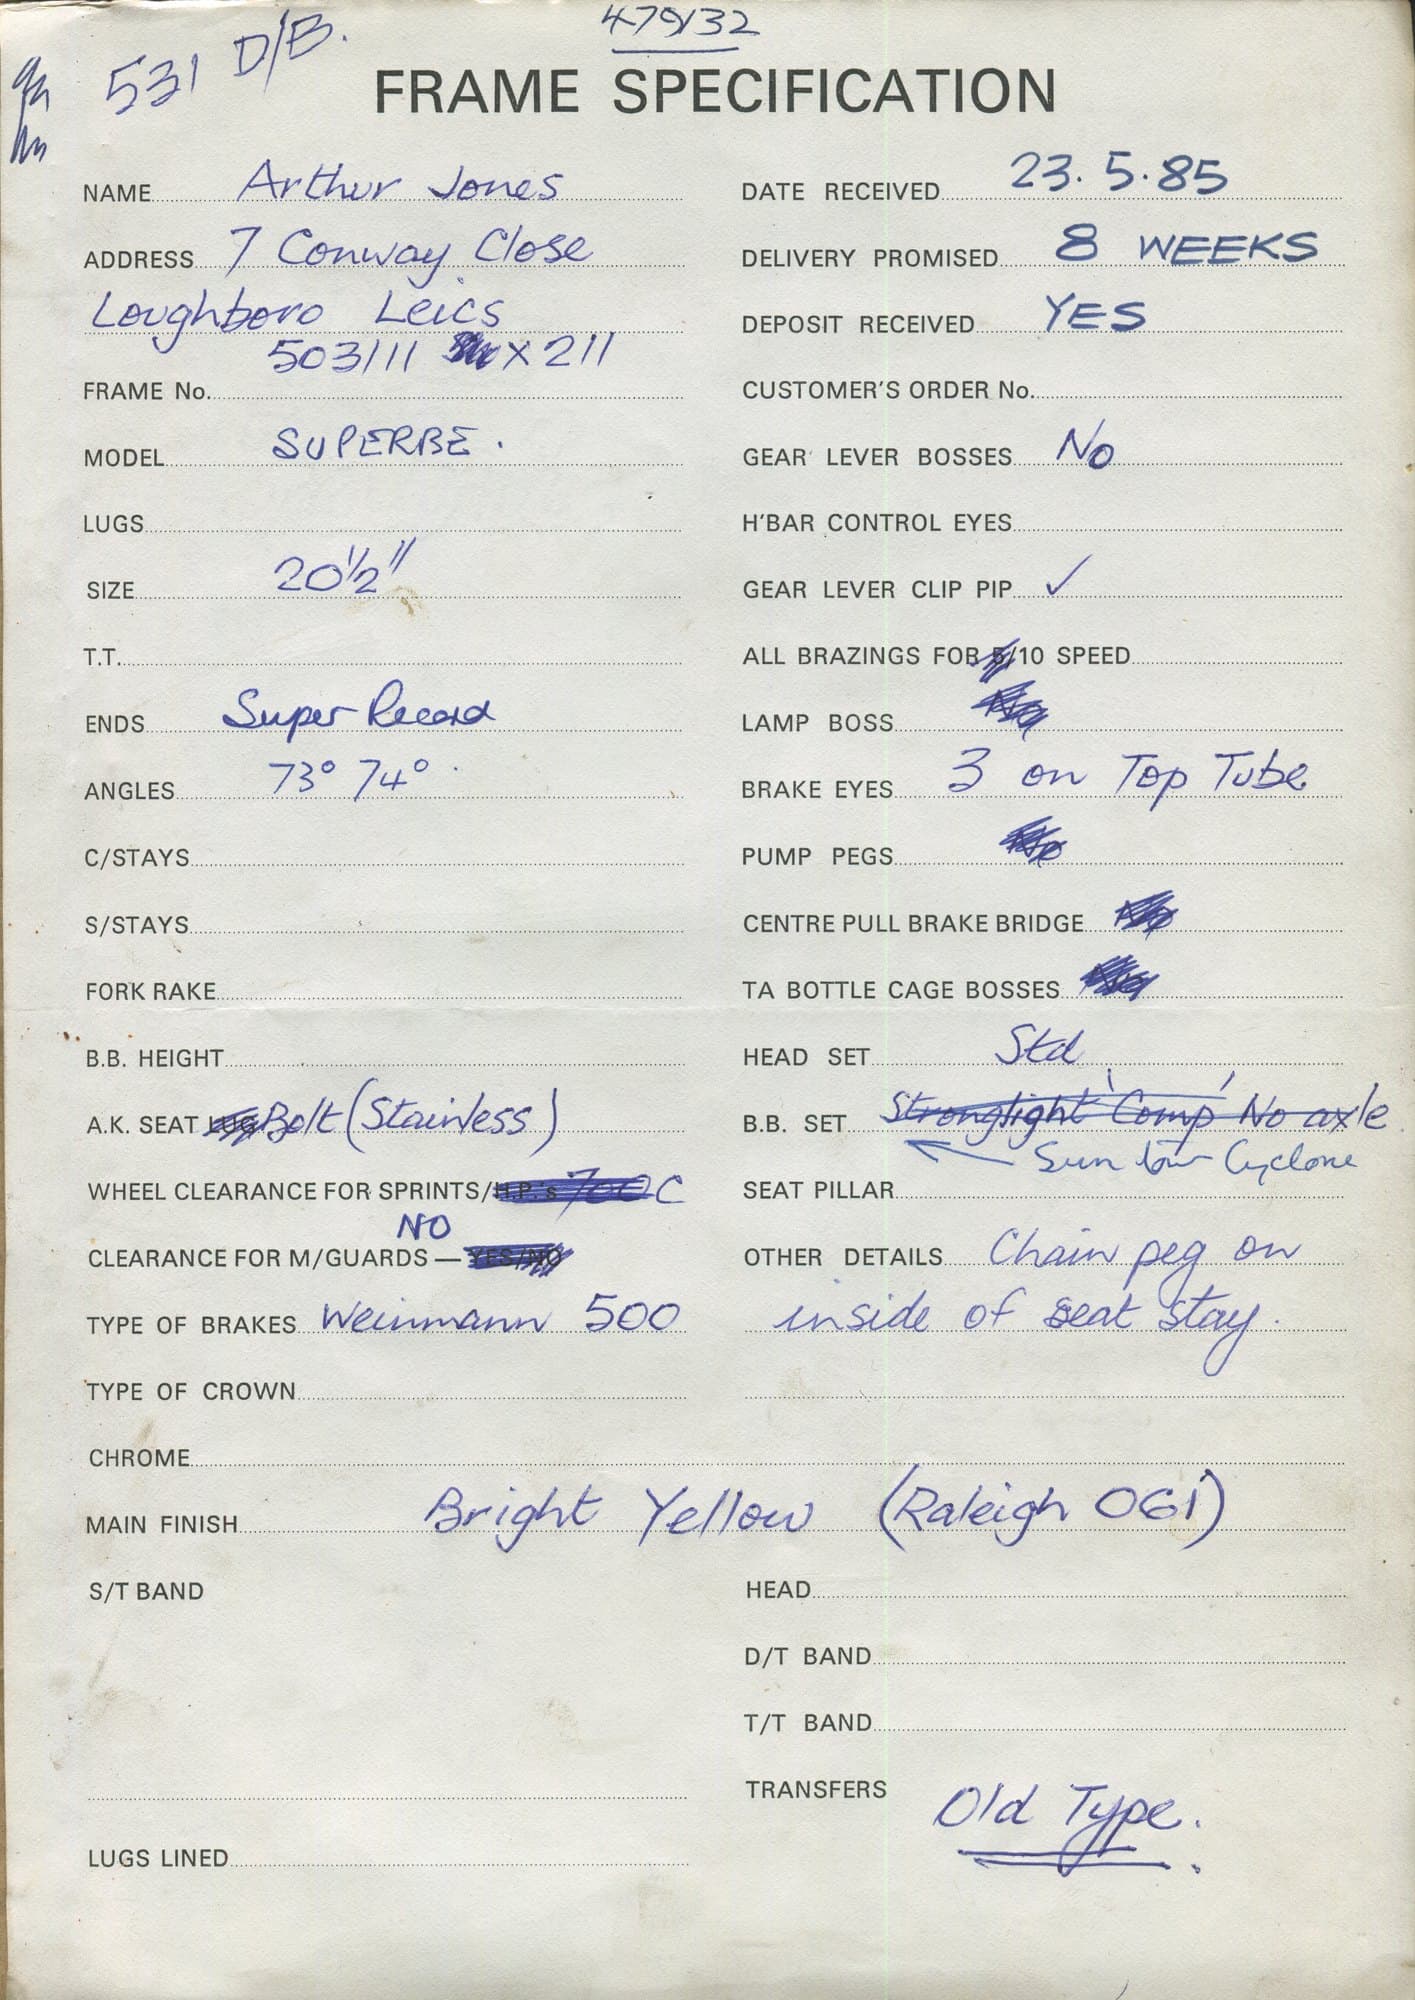 479/32
531 D/B.
FRAME SPECIFICATION
NAME Arthur Jones
ADDRESS 7 Conway Close
Loughboro Leics
503111 X211
FRAME No.
MODEL SUPERBE.
LUGS
SIZE 20 1/2"
T.T.
ENDS Super Record
ANGLES 73° 74°
C/STAYS
S/STAYS
FORK RAKE
B.B. HEIGHT
A.K. SEAT LUG Bolt (Stainless)
WHEEL CLEARANCE FOR SPRINTS/H.P.'s 700C
NO
CLEARANCE FOR M/GUARDS — YES/NO
TYPE OF BRAKES Weinmann 500
TYPE OF CROWN
DATE RECEIVED 23.5.85
DELIVERY PROMISED 8 WEEKS
DEPOSIT RECEIVED YES
CUSTOMER'S ORDER No.
GEAR LEVER BOSSES No
H'BAR CONTROL EYES
GEAR LEVER CLIP PIP ✓
ALL BRAZINGS FOR 5/10 SPEED
LAMP BOSS No
BRAKE EYES 3 on Top Tube
PUMP PEGS No
CENTRE PULL BRAKE BRIDGE No
TA BOTTLE CAGE BOSSES No
HEAD SET Std
B.B. SET Stronglight 'Comp' No axle
Sun tour Cyclone
SEAT PILLAR
OTHER DETAILS Chain peg on
inside of seat stay.
CHROME
MAIN FINISH Bright Yellow (Raleigh OG1)
S/T BAND
LUGS LINED
HEAD
D/T BAND
T/T BAND
TRANSFERS Old Type.